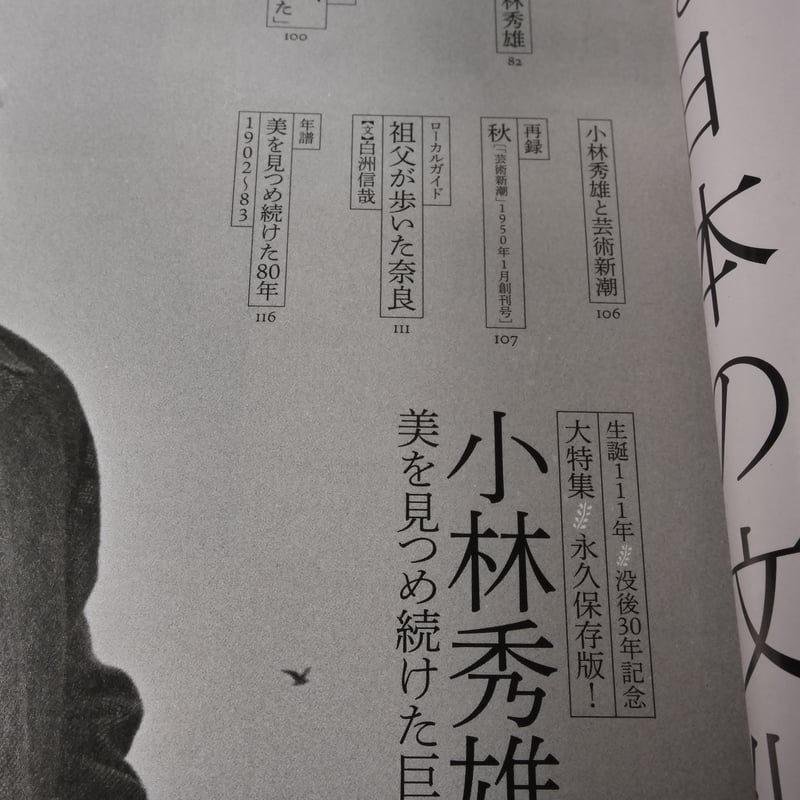 日本の文
林秀雄
82
た」
100
小林秀雄と芸術新潮
106
再録
秋[「芸術新潮」1950年1月創刊号]
107
ローカルガイド
祖父が歩いた奈良
【文】白洲信哉
111
年譜
美を見つめ続けた80年
1902〜83
116
生誕111年 没後30年記念
大特集 永久保存版！
小林秀雄
美を見つめ続けた巨